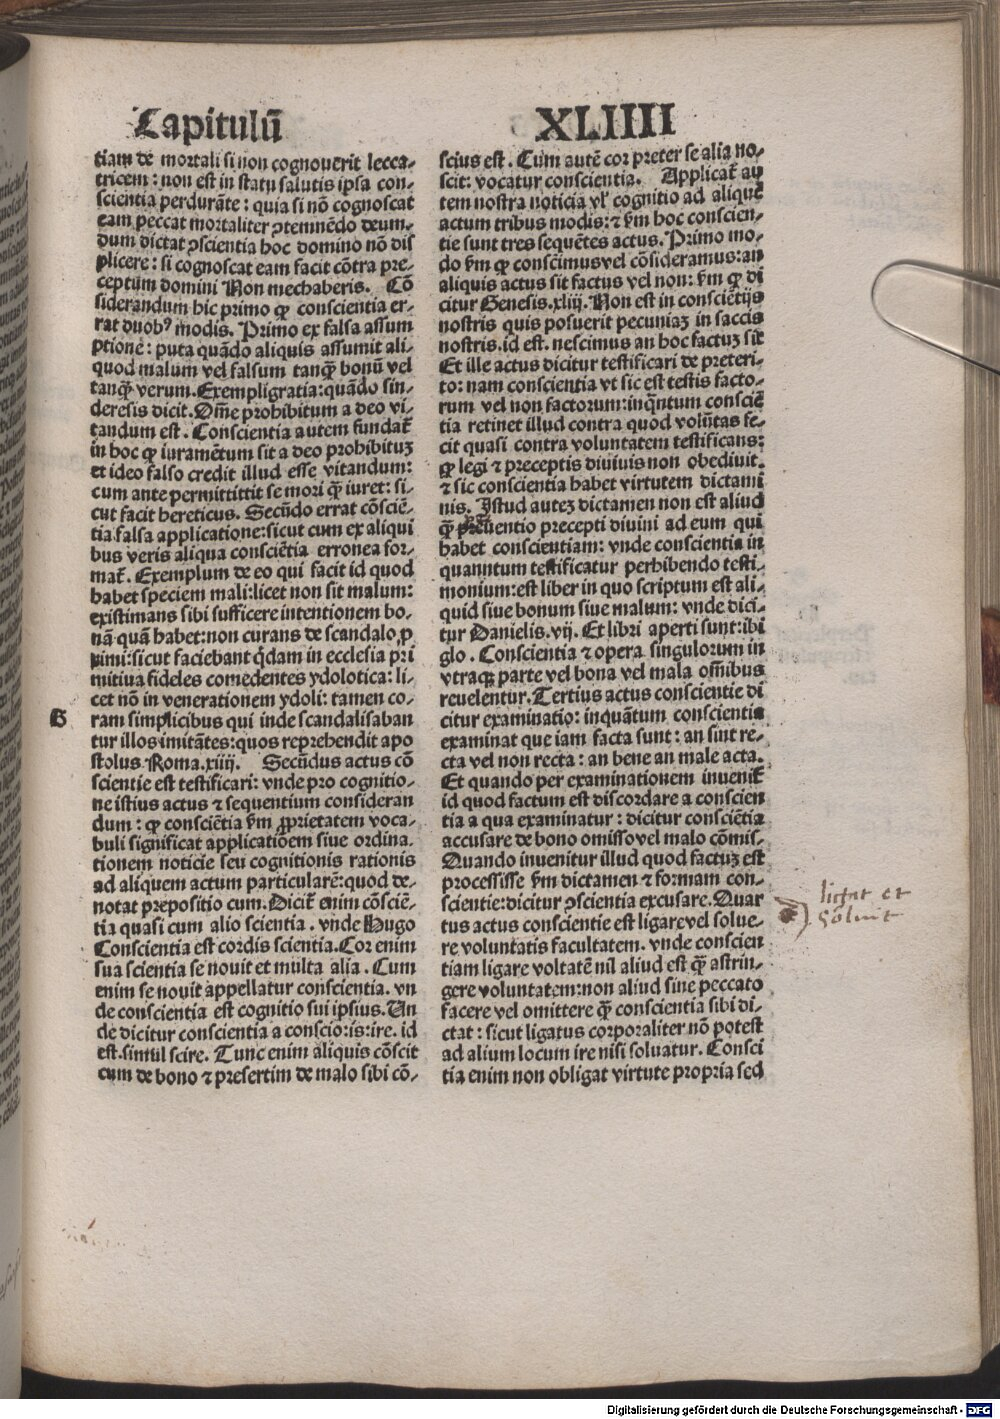 Capitulū XLIIII
tiam de mortali si non cognouerit lecca⸗
tricem: non est in statu salutis ipsa con⸗
scientia perdurāte: quia si nō cognoscat
eam peccat mortaliter ꝯtemnēdo deum⸗
dum dictat ꝯscientia hoc domino nō dis
plicere: si cognoscat eam facit cōtra pre⸗
ceptum domini Non mechaberis. Cō
siderandum hic primo ꝙ conscientia er⸗
rat duobꝰ modis. Primo ex falsa assum
ptione: puta quādo aliquis assumit ali⸗
quod malum vel falsum tanꝗ̄ bonū vel
tanꝗ̄ verum. Exempligratia: quādo sin⸗
deresis dicit. Om̄e prohibitum a deo vi⸗
tandum est. Conscientia autem fundat᷑
in hoc ꝙ iuramētum sit a deo prohibituꝫ
et ideo falso credit illud esse vitandum:
cum ante permittittit se mori ꝗ̄ iuret: si⸗
cut facit hereticus. Secūdo errat cōsciē⸗
tia falsa applicatione: sicut cum ex aliqui
bus veris aliqua consciētia erronea for⸗
mat᷑. Exemplum de eo qui facit id quod
habet speciem mali: licet non sit malum:
existimans sibi sufficere intentionem bo⸗
nā quā habet: non curans de scandalo ꝓ
ximi: sicut faciebant ꝗ̄dam in ecclesia pri
mitiua fideles comedentes ydolotica: li⸗
cet nō in venerationem ydoli: tamen co⸗
G ram simplicibus qui inde scandalisaban
tur illos imitātes: quos reprehendit apo
stolus. Roma. xiiij. Secūdus actus cō
scientie est testificari: vnde pro cognitio⸗
ne istius actus ⁊ sequentium consideran
dum: ꝙ consciētia ẜm ꝓprietatem voca⸗
buli significat applicatiōem siue ordina.
tionem noticie seu cognitionis rationis
ad aliquem actum particularē: quod de⸗
notat prepositio cum. Dicit᷑ enim cōsciē⸗
tia quasi cum alio scientia. vnde Hugo
Conscientia est cordis scientia. Cor enim
sua scientia se nouit et multa alia. Cum
enim se nouit appellatur conscientia. vn
de conscientia est cognitio sui ipsius. Un
de dicitur conscientia a conscio: is: ire. id
est. simul scire. Tunc enim aliquis cōscit
cum de bono ⁊ presertim de malo sibi cō⸗
scius est. Cum autē cor preter se alia no⸗
scit: vocatur conscientia. Applicat᷑ au
tem nostra noticia vl̓ cognitio ad aliquē
actum tribus modis: ⁊ ẜm hoc conscien⸗
tie sunt tres sequētes actus. Primo mo⸗
do ẜm ꝙ conscimus vel cōsideramus: an
aliquis actus sit factus vel non: ẜm ꝙ di
citur Genesis. xliij. Non est in consciētijs
nostris quis posuerit pecuniaꝫ in saccis
nostris. id est. nescimus an hoc factuꝫ sit
Et ille actus dicitur testificari de preteri⸗
to: nam conscientia vt sic est testis facto⸗
rum vel non factorum: inꝗ̄ntum consciē
tia retinet illud contra quod volūtas fe⸗
cit quasi contra voluntatem testificans:
ꝙ legi ⁊ preceptis diuiuis non obediuit.
⁊ sic conscientia habet virtutem dictami
nis. Istud auteꝫ dictamen non est aliud
ꝗ̄ uentio precepti diuini ad eum qui
habet conscientiam: vnde conscientia in
quanntum testificatur perhibendo testi⸗
monium: est liber in quo scriptum est ali⸗
quid siue bonum siue malum: vnde dici⸗
tur Danielis. vij. Et libri aperti sunt: ibi
glo. Conscientia ⁊ opera singulorum in
vtraqꝫ parte vel bona vel mala om̄ibus
reuelentur. Tertius actus conscientie di
citur examinatio: inquātum conscientia
examinat que iam facta sunt: an sint re⸗
cta vel non recta: an bene an male acta.
Et quando per examinationem inuenit᷑
id quod factum est discordare a conscien
tia a qua examinatur: dicitur consciētia
accusare de bono omisso vel malo cōmis⸗
Quando inuenitur illud quod factuꝫ est
processisse ẜm dictamen ⁊ formam con⸗
scientie: dicitur ꝯscientia excusare. Quar
tus actus conscientie est ligare vel solue⸗
re voluntatis facultatem. vnde conscien
tiam ligare voltatē nil aliud est ꝗ̄ astrin⸗
gere voluntatem: non aliud sine peccato
facere vel omittere ꝗ̄ conscientia sibi di⸗
ctat: sicut ligatus corporaliter nō potest
ad alium locum ire nisi soluatur. Consci
tia enim non obligat virtute propria sed
ligat et
soluit
Digitalisierung gefördert durch die Deutsche Forschungsgemeinschaft - DFG